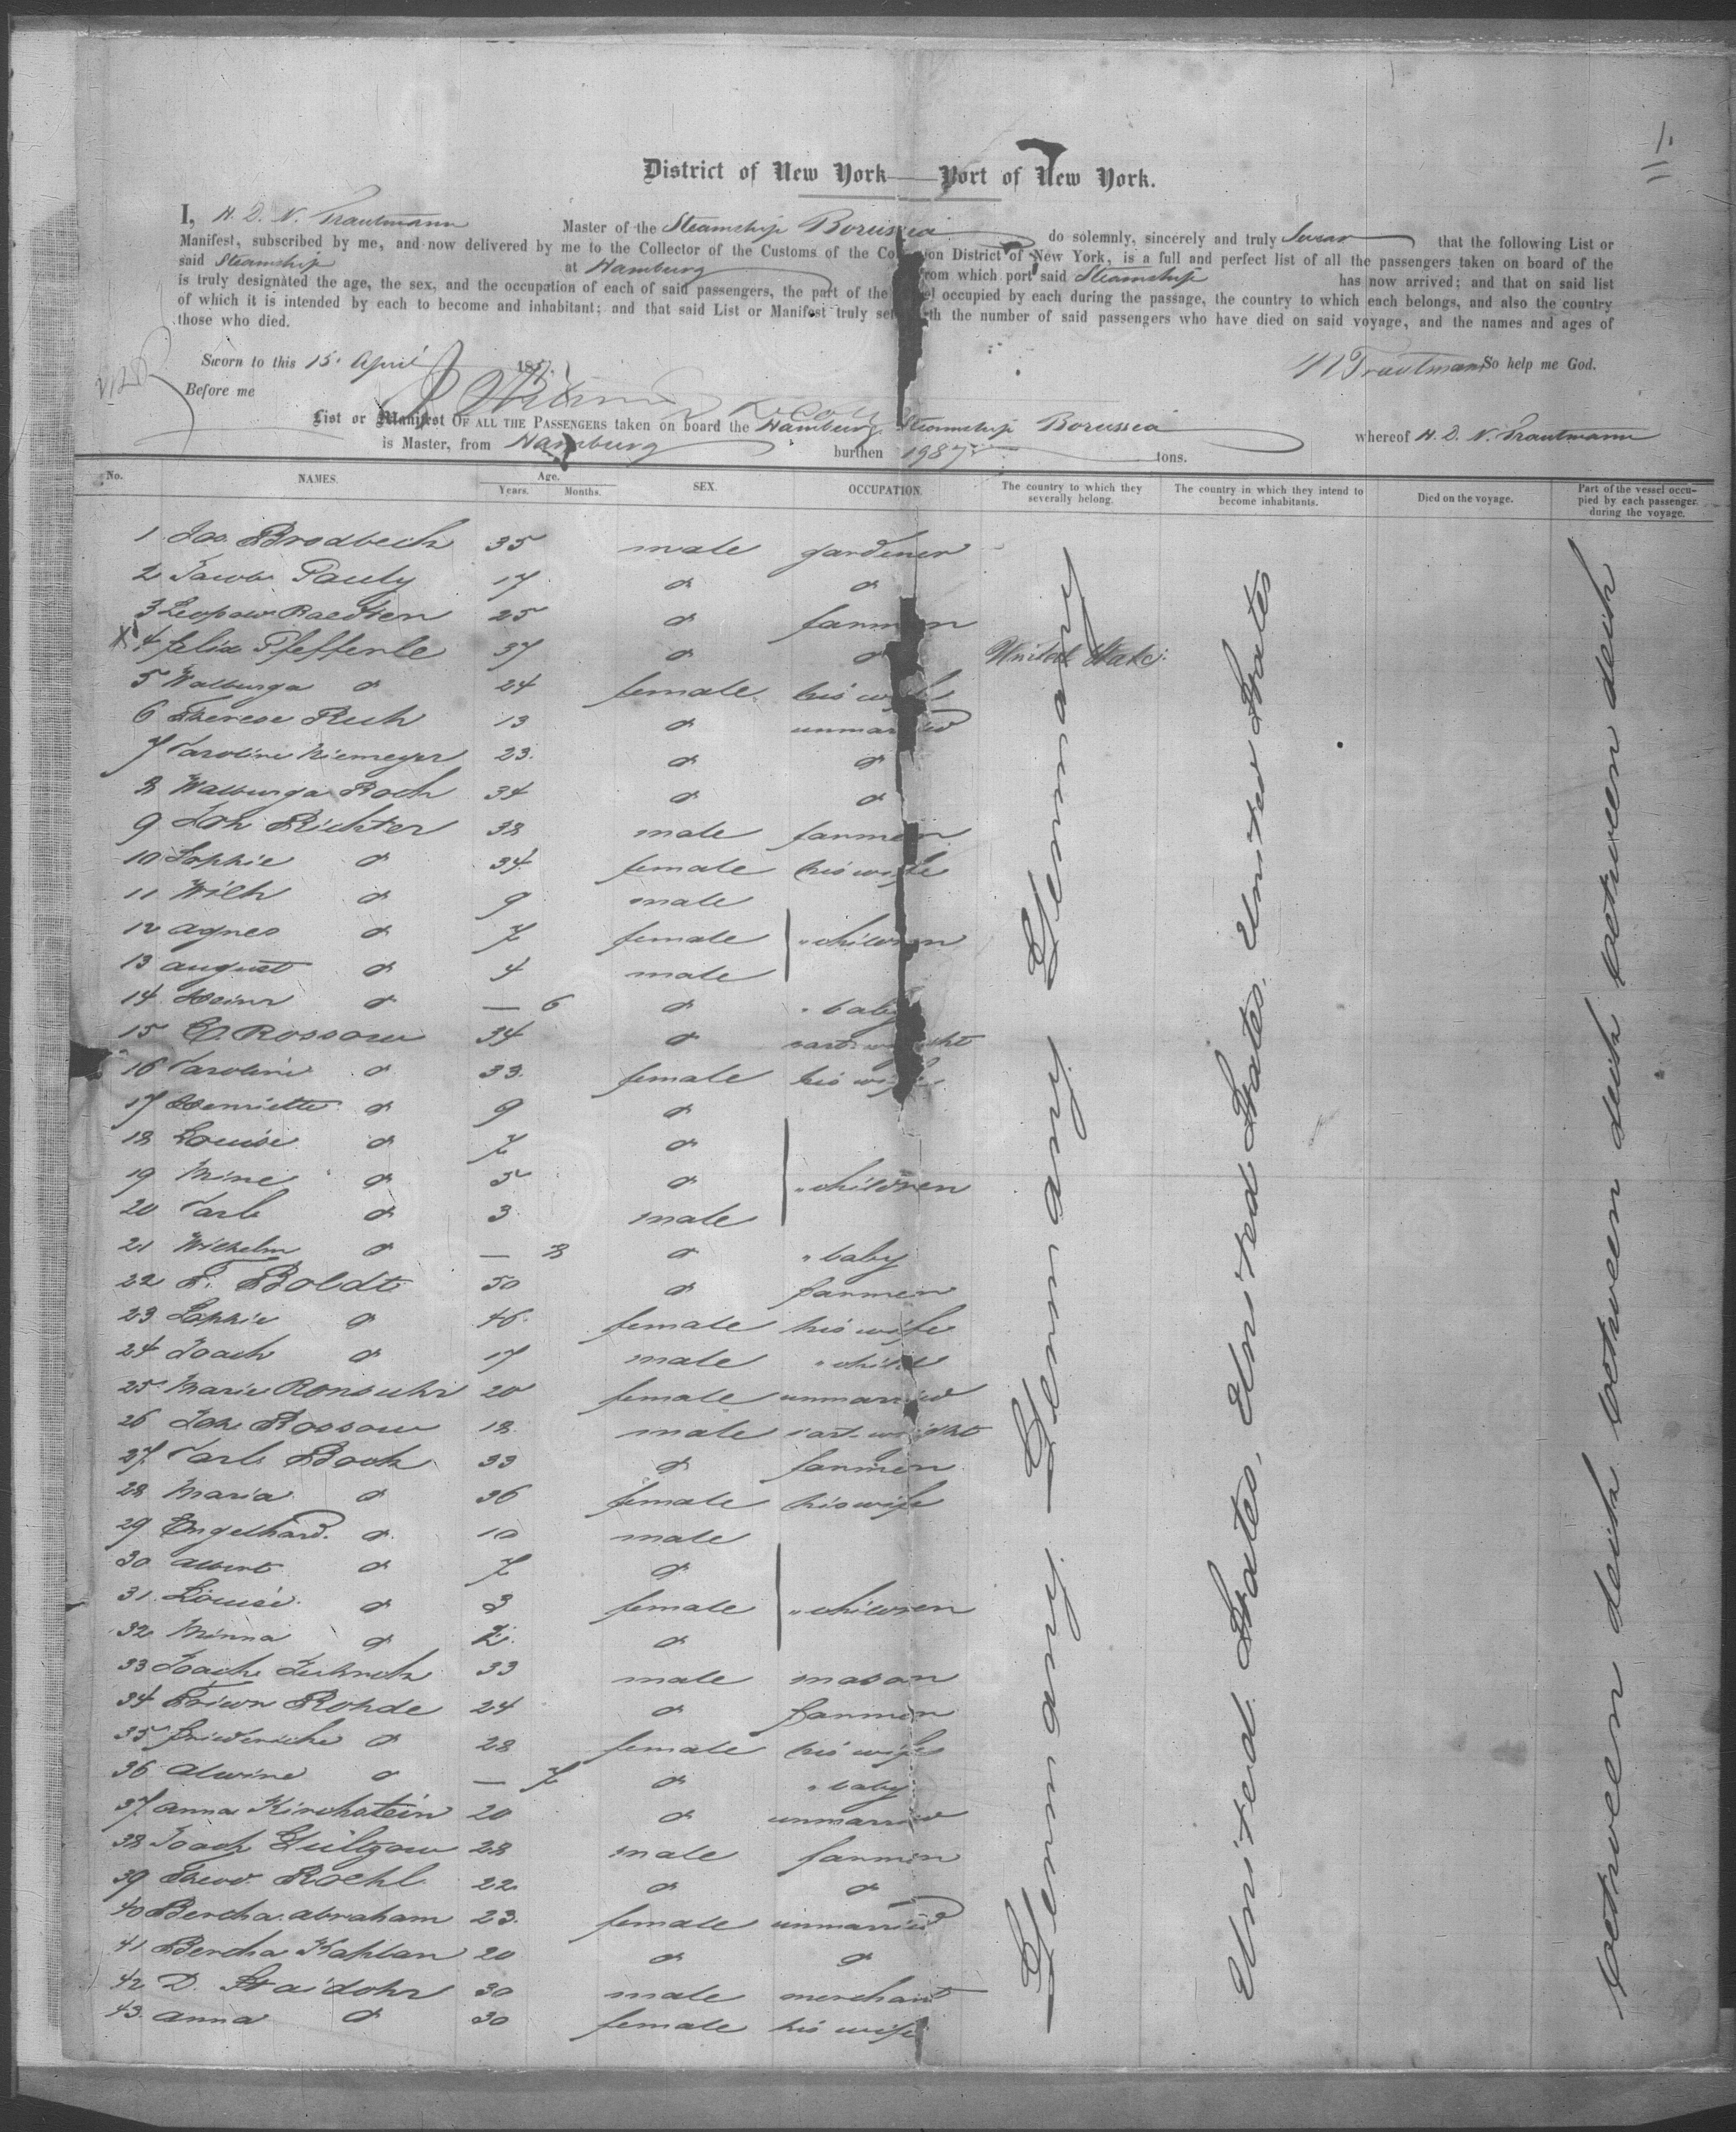 1.
District of New York — Port of New York.
I, H. D. N. Trautmann Master of the Steamship Borussia do solemnly, sincerely and truly swear that the following List or
Manifest, subscribed by me, and now delivered by me to the Collector of the Customs of the Co on District of New York, is a full and perfect list of all the passengers taken on board of the
said Steamship at Hamburg from which port said Steamship has now arrived; and that on said list
is truly designated the age, the sex, and the occupation of each of said passengers, the part of the el occupied by each during the passage, the country to which each belongs, and also the country
of which it is intended by each to become and inhabitant; and that said List or Manifest truly set th the number of said passengers who have died on said voyage, and the names and ages of
those who died.
Sworn to this 15. April 185 Trautmann So help me God.
Before me
List or Manifest OF ALL THE PASSENGERS taken on board the Hamburg Steamship Borussia whereof H. D. N. Trautmann
is Master, from Hamburg burthen 1987 tons.
No. NAMES. Age. Years. Months. SEX. OCCUPATION. The country to which they severally belong. The country in which they intend to become inhabitants. Died on the voyage. Part of the vessel occupied by each passenger during the voyage.
1 Jos. Brodbeck 35 male gardener
2 Jacob Pauly 17 do do
3 Leopold Raedten 25 do farmer
X 4 Felix Pfefferle 37 do do United States
5 Walburga do 24 female his wife
6 Therese Ruh 13 do unmarried
7 Caroline Niemeyer 23. do do
8 Walburga Koch 34 do do
9 Joh Richter 38 male farmer
10 Sophie do 34 female his wife
11 Wilh do 9 male
12 Agnes do 7 female " children
13 August do 4 male
14 Heinr do — 6 do " baby
15 C. Rossow 34 do cartwright
16 Caroline do 33. female his wife
17 Henriette do 9 do
18 Louise do 7 do
19 Mine do 5 do " children
20 Carl do 3 male
21 Wilhelm do — 8 do " baby
22 F. Boldt 50 do farmer
23 Sophie do 46. female his wife
24 Joach do 17 male " child
25 Marie Ronsuhr 20 female unmarried
26 Joh Rossow 18 male cartwright
27 Carl Book 33 do farmer
28 Maria do 36 female his wife
29 Engelhard. do 10 male
30 Albert do 7 do
31 Louise do 3 female " children
32 Minna do do
33 Joach 33 male mason
34 Rohde 24 do farmer
35 Friederike do 28 female his wife
36 Alwine do — 7 do " baby
37 Anna Kirchstein 20 do unmarried
38 Joach Gültzow 28 male farmer
39 Theod Roehl 22 do do
40 Bertha Abraham 23. female unmarried
41 Bertha Kaplan 20 do do
42 D. Haidohr 30 male merchant
43 Anna do 30 female his wife
Germany Germany Germany Germany
United States, United States, United States, United States
between deck between deck between deck